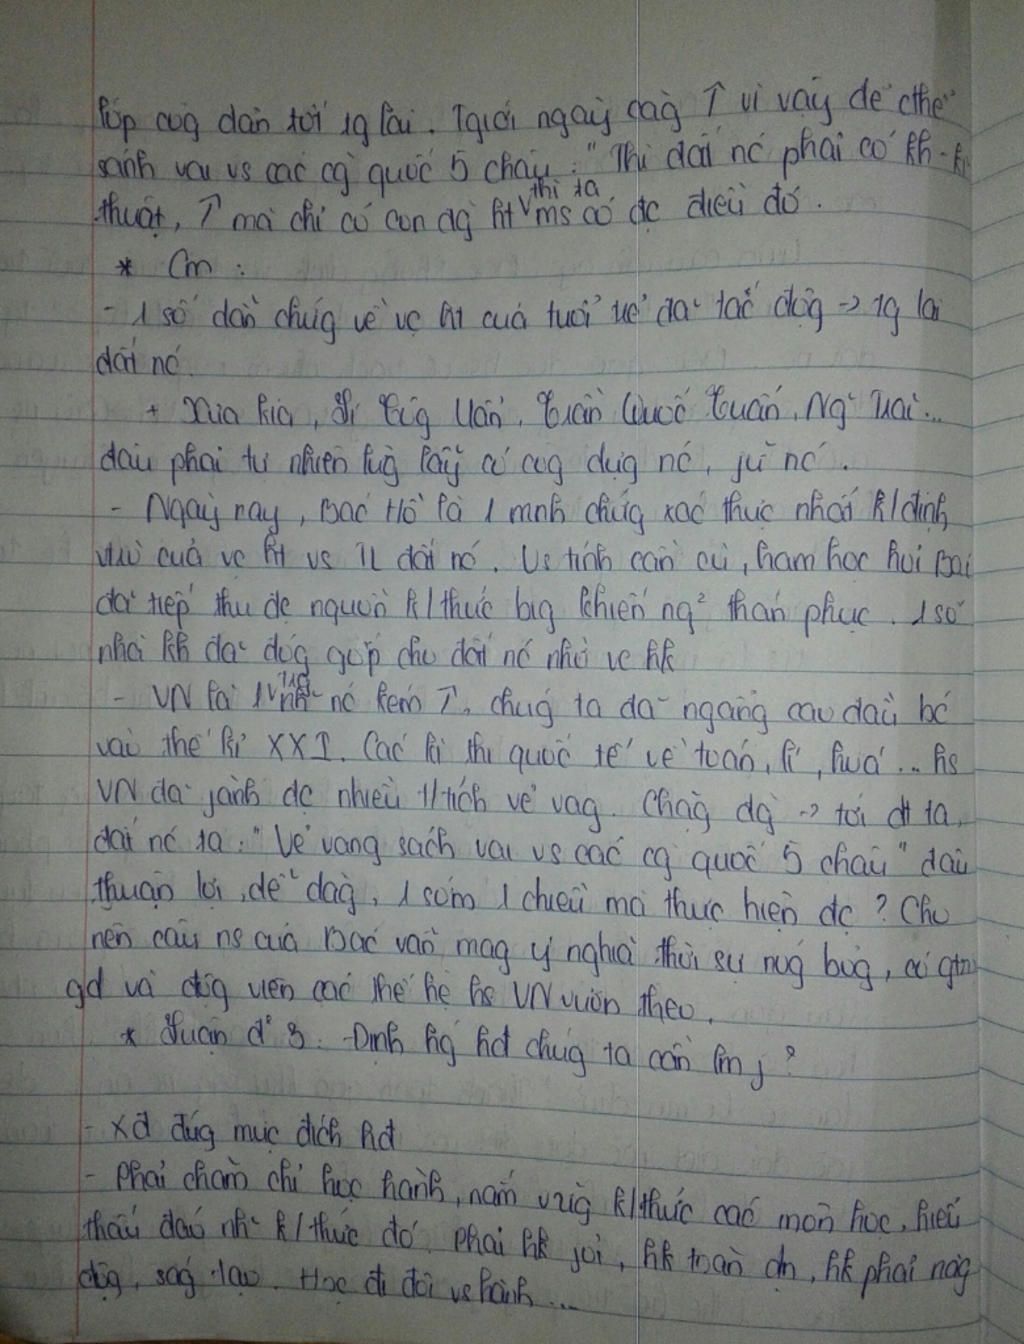 lớp cũg dẫn tới tg lai. Tgiới ngày càg ↑ vì vậy để cthể
sánh vai vs các cg quốc 5 châu. "Thì đất nc phải có kh-kĩ
thuật, ↑ mà chỉ có con đg ht thì ta ms có đc điều đó.
* Cm :
- 1 số dẫn chứg về vc ht của tuổi trẻ đã tác độg -> tg lai
đất nc.
+ Xưa kia, Trần Quốc Tuấn, Ng~ Trãi...
đâu phải tự nhiên lúg lấy có côg dựg nc, jữ nc.
- Ngày nay, Bác Hồ là 1 mnh chứg xác thực nhất k/định
vtrò của vc ht vs TL đất nc. Vs tính cần cù, ham học hỏi Bác
đã tiếp thu đc nguồn k/thức khiến ng² thán phục. 1 số
nhà kh đã đóg góp cho đất nc nhờ vc hk
- VN là 1 trg nh~ nc kém ↑, chúg ta đã ngẩng cao đầu bc
vào thế kỉ XXI. Các kì thi quốc tế về toán, lí, hoá ... hs
VN đã jành đc nhiều t/tích vẻ vag. Chặg đg -> tới đt ta,
đất nc ta : "Vẻ vang sách vai vs các cg quốc 5 châu" đâu
thuận lợi, dễ dàg, 1 sớm 1 chiều mà thực hiện đc ? Cho
nên câu ns của Bác vẫn mag ý nghĩa thời sự nóg bỏg, có gtrị
gd và độg viên các thế hệ hs VN vươn theo.
* Luận đ² 3. Định hg' hđ chúg ta cần lm j ?
- Xđ đúg mục đích hđ
- Phải chăm chỉ học hành, nắm vữg k/thức các môn học, hiểu
thấu đáo nh~ k/thức đó. Phải hk jỏi, hk toàn dn, hk phải năg
độg, ság tạo. Học đi đôi vs hành ...